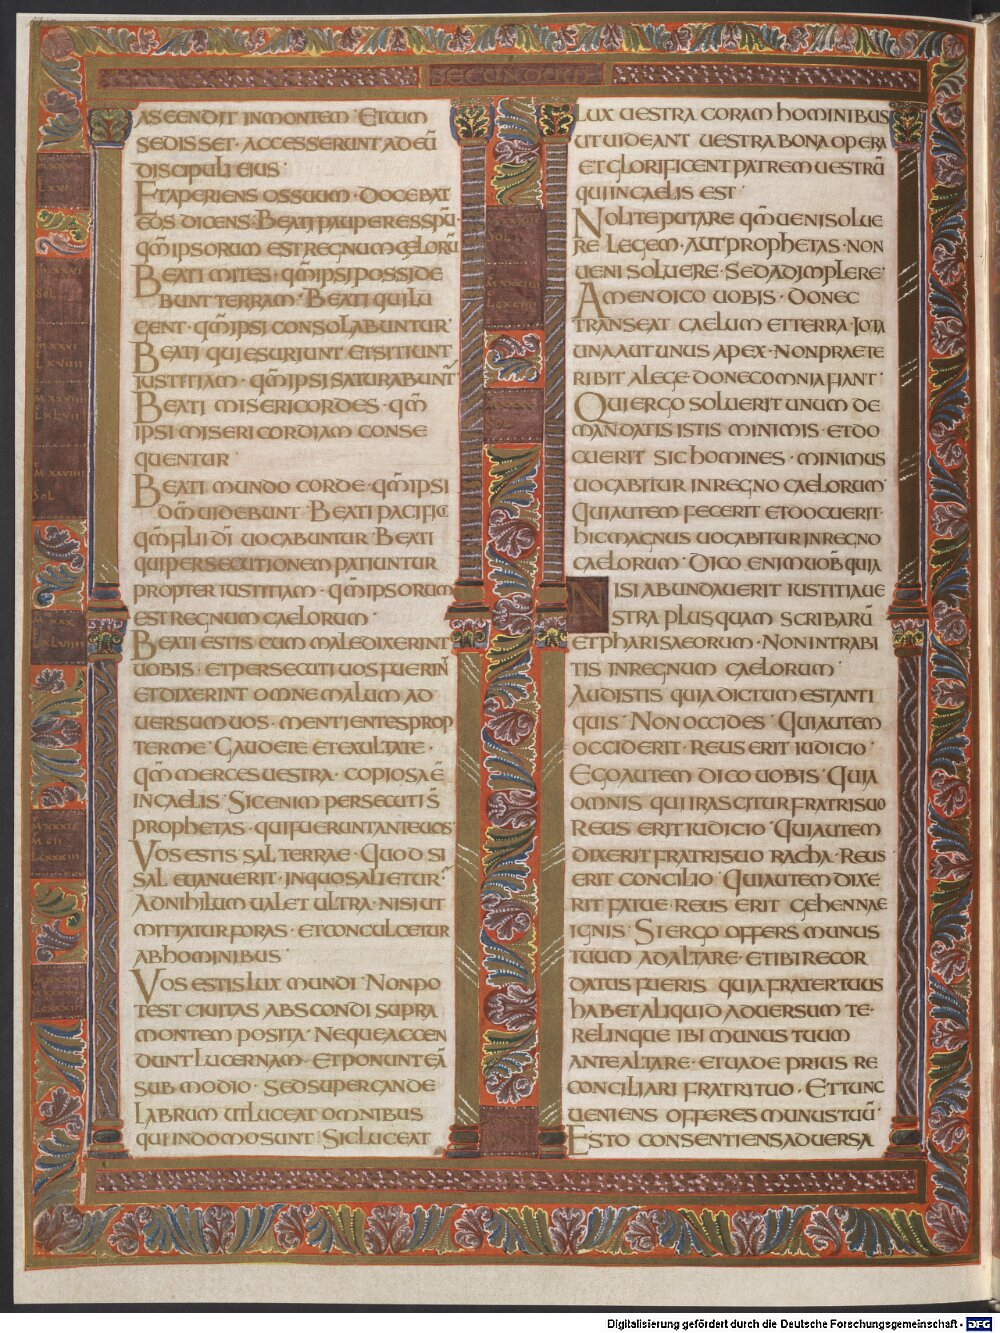 SECUNDUM
ASCENDIT INMONTEM· ETCUM
SEDISSET· ACCESSERUNT ADEŪ
DISCIPULI EIUS·
ETAPERIENS OSSUUM· DOCEBAT
EOS DICENS· BEATI PAUPERES SPŪ·
QM̄ IPSORUM EST REGNUM CELORŪ
BEATI MITES· QM̄ IPSI POSSIDE
BUNT TERRAM· BEATI QUI LU
GENT· QM̄ IPSI CONSOLABUNTUR·
BEATI QUI ESURIUNT ETSITIUNT
IUSTITIAM· QM̄ IPSI SATURABUNT
BEATI MISERICORDES· QM̄
IPSI MISERICORDIAM CONSE
QUENTUR·
BEATI MUNDO CORDE· QM̄ IPSI
DM̄ UIDEBUNT· BEATI PACIFIC
QM̄ FILII DĪ UOCABUNTUR· BEATI
QUI PERSECUTIONEM PATIUNTUR
PROPTER IUSTITIAM· QM̄ IPSORUM
EST REGNUM CAELORUM·
BEATI ESTIS CUM MALEDIXERINT
UOBIS· ET PERSECUTI UOS FUERIN̄
ET DIXERINT OMNE MALUM AD
UERSUM UOS· MENTIENTES PROP
TER ME· GAUDETE ET EXULTATE·
QM̄ MERCES UESTRA· COPIOSA Ē
IN CAELIS· SIC ENIM PERSECUTI S̄
PROPHETAS· QUI FUERUNT ANTE UOS
VOS ESTIS SAL TERRAE· QUOD SI
SAL EUANUERIT· IN QUO SALIETUR·
AD NIHILUM UALET ULTRA· NISI UT
MITTATUR FORAS· ET CONCULCETUR
AB HOMINIBUS·
VOS ESTIS LUX MUNDI· NON PO
TEST CIUITAS ABSCONDI SUPRA
MONTEM POSITA· NEQUE ACCEN
DUNT LUCERNAM· ET PONUNT EĀ
SUB MODIO· SED SUPER CANDE
LABRUM UT LUCEAT OMNIBUS
QUI IN DOMO SUNT· SIC LUCEAT
LUX UESTRA CORAM HOMINIBUS
UT UIDEANT UESTRA BONA OPERA
ET GLORIFICENT PATREM UESTRŪ
QUI IN CAELIS EST·
NOLITE PUTARE QM̄ UENI SOLUE
RE LEGEM· AUT PROPHETAS· NON
UENI SOLUERE· SED ADIMPLERE·
AMEN DICO UOBIS· DONEC
TRANSEAT CAELUM ET TERRA· IOTA
UNA AUT UNUS APEX· NON PRAETE
RIBIT A LEGE· DONEC OMNIA FIANT·
QUI ERGO SOLUERIT UNUM DE
MANDATIS ISTIS MINIMIS· ET DO
CUERIT SIC HOMINES· MINIMUS
UOCABITUR IN REGNO CAELORUM·
QUI AUTEM FECERIT ET DOCUERIT·
HIC MAGNUS UOCABITUR IN REGNO
CAELORUM· DICO ENIM UOB̄ QUIA
NISI ABUNDAUERIT IUSTITIA UE
STRA PLUS QUAM SCRIBARŪ
ET PHARISAEORUM· NON INTRABI
TIS IN REGNUM CAELORUM·
AUDISTIS QUIA DICTUM EST ANTI
QUIS· NON OCCIDES· QUI AUTEM
OCCIDERIT· REUS ERIT IUDICIO·
EGO AUTEM DICO UOBIS· QUIA
OMNIS QUI IRASCITUR FRATRI SUO
REUS ERIT IUDICIO· QUI AUTEM
DIXERIT FRATRI SUO RACHA· REUS
ERIT CONCILIO· QUI AUTEM DIXE
RIT FATUE· REUS ERIT GEHENNAE
IGNIS· SI ERGO OFFERS MUNUS
TUUM AD ALTARE· ET IBI RECOR
DATUS FUERIS QUIA FRATER TUUS
HABET ALIQUID ADUERSUM TE·
RELINQUE IBI MUNUS TUUM
ANTE ALTARE· ET UADE PRIUS RE
CONCILIARI FRATRI TUO· ET TUNC
UENIENS OFFERES MUNUS TUŪ·
ESTO CONSENTIENS ADUERSA
Digitalisierung gefördert durch die Deutsche Forschungsgemeinschaft - DFG